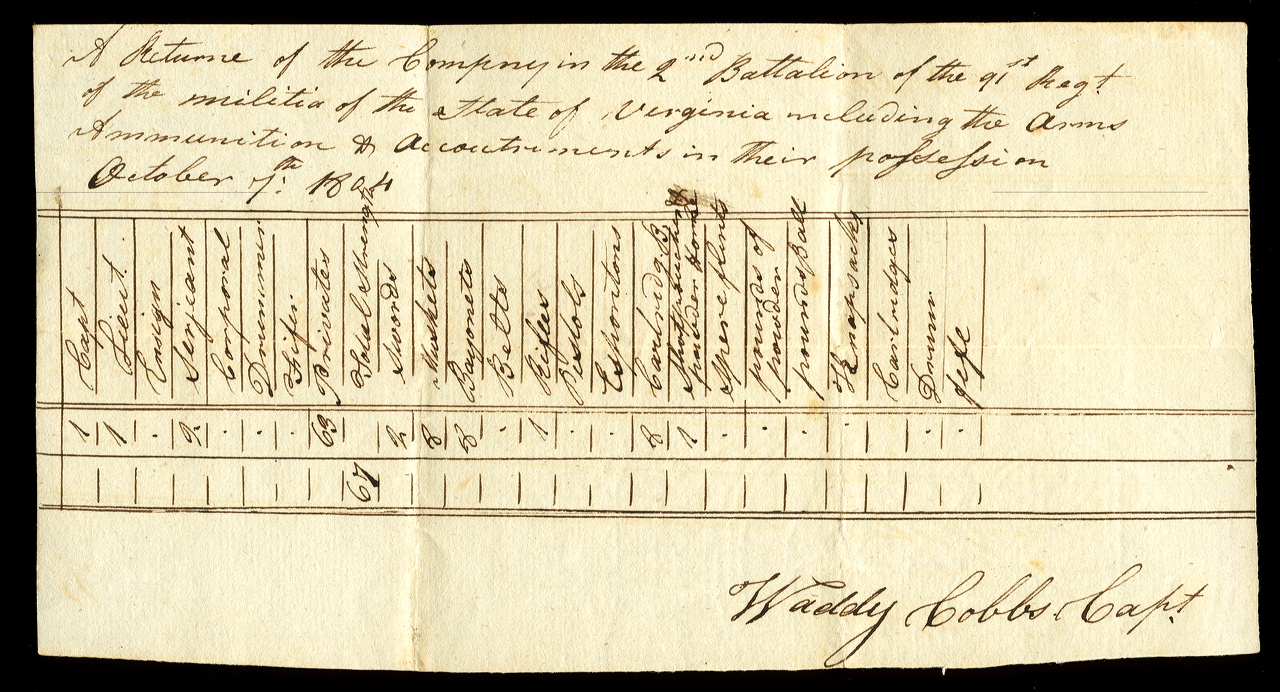 A Returne of the Compney in the 2nd Battalion of the 91st Regt
of the militia of the State of Virginia including the Arms
Ammunition & Accoutrements in their possession
October 7th: 1804
Capt
Lieut.
Ensign
Serjeant
Corporal
Drummer
Fifer
Privates
Total Strength
Swords
Muskets
Bayonets
Belts
Rifles
Pistols
Espontons
Cartridg B
Shotpouch and
powder Horne
Spere flints
pounds of
powder
pounds Ball
Knapsacks
Cartridges
Drum
fife
1 1 . 2 . . . 63 2 8 8 . 1 . . 8 1 . . . . . . .
67
Waddy Cobbs. Capt